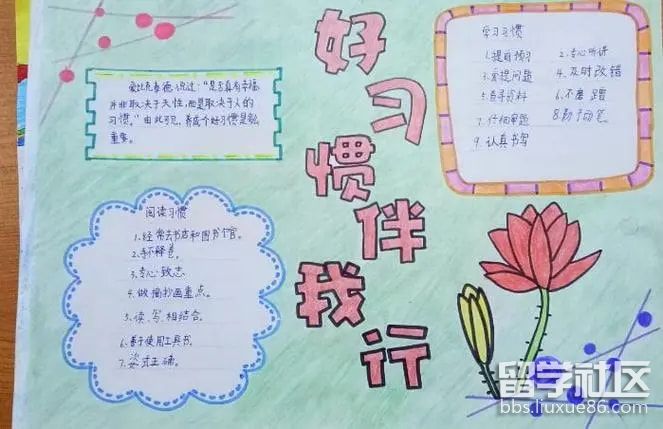 好习惯伴我行
爱比克泰德说过:“是否真有幸福
并非取决于天性,而是取决于人的
习惯。”由此可见,养成个好习惯是多么
重要。
学习习惯
1.提前预习
2.专心听讲
3.爱提问题
4.及时改错
5.查寻资料
6.不磨蹭
7.仔细审题
8.勤于动笔
9.认真书写
阅读习惯
1.经常去书店和图书馆。
2.手不释卷。
3.专心致志
4.做摘抄画重点。
5.读、写相结合。
6.善于使用工具书
7.姿式正确。
留学社区
bbs.liuxue86.com